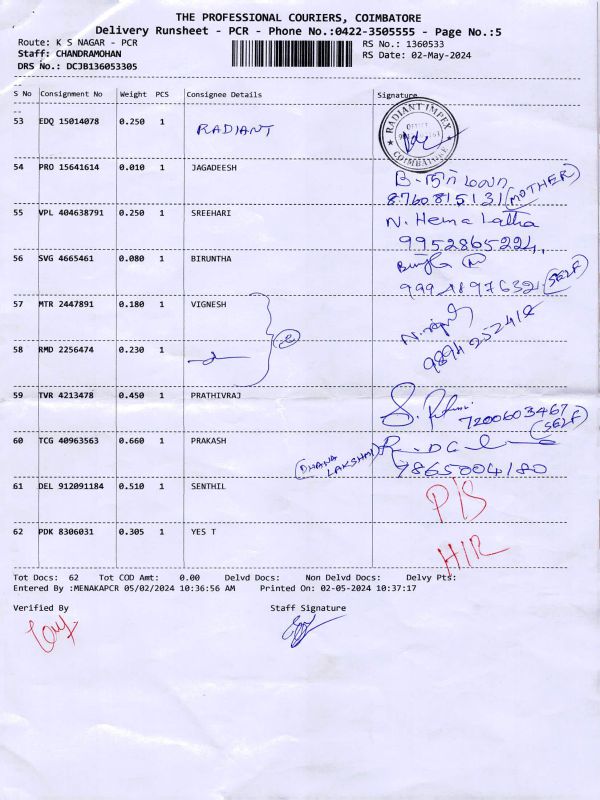 THE PROFESSIONAL COURIERS, COIMBATORE
Delivery Runsheet - PCR - Phone No.:0422-3505555 - Page No.:5
Route: K S NAGAR - PCR RS No.: 1360533
Staff: CHANDRAMOHAN RS Date: 02-May-2024
DRS No.: DCJB136053305
S No Consignment No Weight PCS Consignee Details Signature
53 EDQ 15014078 0.250 1 RADIANT RADIANT IMPEX COIMBATORE
54 PRO 15641614 0.010 1 JAGADEESH
8760815131 (MOTHER)
55 VPL 404638791 0.250 1 SREEHARI N. Hema Latha
9952865224.
56 SVG 4665461 0.080 1 BIRUNTHA
9994897632 (SELF)
57 MTR 2447891 0.180 1 VIGNESH
9894252412
58 RMD 2256474 0.230 1
59 TVR 4213478 0.450 1 PRATHIVRAJ
7200603467
(SELF)
60 TCG 40963563 0.660 1 PRAKASH
(DHANA LAKSHMI) 9865004180
61 DEL 912091184 0.510 1 SENTHIL P/S
62 PDK 8306031 0.305 1 YES T H/R
Tot Docs: 62 Tot COD Amt: 0.00 Delvd Docs: Non Delvd Docs: Delvy Pts:
Entered By :MENAKAPCR 05/02/2024 10:36:56 AM Printed On: 02-05-2024 10:37:17
Verified By Staff Signature